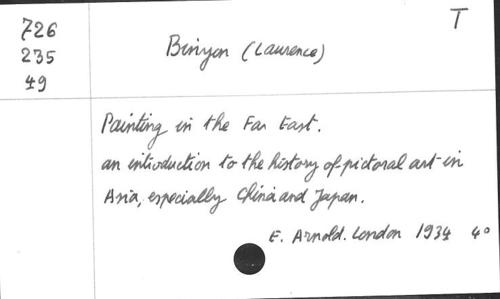 726
235
49
T
Binyon (Laurence)
Painting in the Far East.
an introduction to the history of pictoral art in
Asia, especially China and Japan.
E. Arnold. London 1934 4°